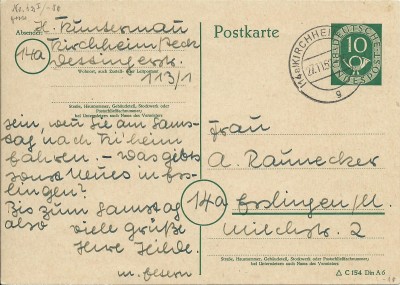 Absender:
H. Kuntermau
14a
Kirchheim/Teck
Dettingerstr.
Wohnort, auch Zustell- oder Leitpostamt
113/1
Straße, Hausnummer, Gebäudeteil, Stockwerk oder
Postschließfachnummer;
bei Untermietern auch Name des Vermieters
sein, wen Sie am Sams-
tag nach K'heim
fahren. – Was gibts
sonst Neues in Ess-
lingen?
Bis zum Samstag
also viele Grüße
Ihre Hilde.
u. Eltern
Postkarte
DEUTSCHE BUNDESPOST
10
(14a) KIRCHHEIM
g
Frau
A. Raunecker
14a
Esslingen/N.
Milchstr. 2
Straße, Hausnummer, Gebäudeteil, Stockwerk oder Postschließfachnummer;
bei Untermietern auch Name des Vermieters
△ C 154 Din A 6